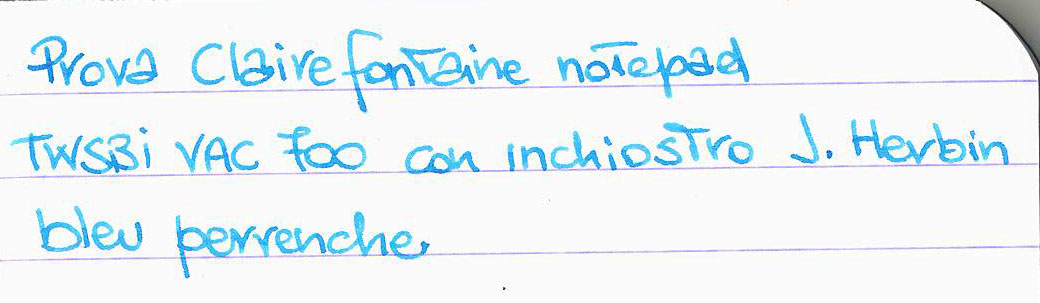 Prova Clairefontaine notepad
TWSBi VAC 700 con inchiostro J. Herbin
bleu perrenche.